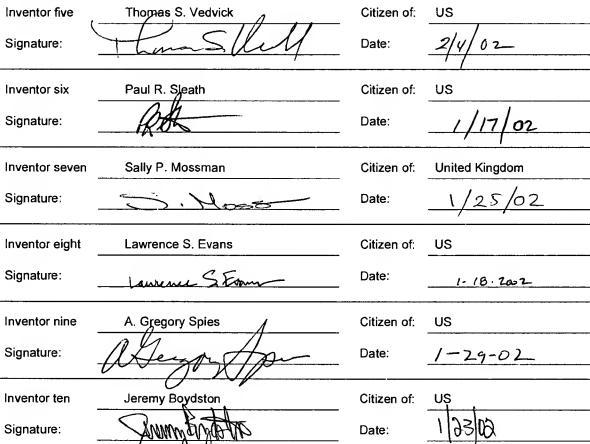 Inventor five Thomas S. Vedvick Citizen of: US
Signature: Thomas S. Date: 2/4/02
Inventor six Paul R. Sleath Citizen of: US
Signature: Date: 1/17/02
Inventor seven Sally P. Mossman Citizen of: United Kingdom
Signature: S. Moss Date: 1/25/02
Inventor eight Lawrence S. Evans Citizen of: US
Signature: Lawrence S. Evans Date: 1-18-2002
Inventor nine A. Gregory Spies Citizen of: US
Signature: A Gregory Spies Date: 1-29-02
Inventor ten Jeremy Boydston Citizen of: US
Signature: Jeremy Boydston Date: 1/23/02